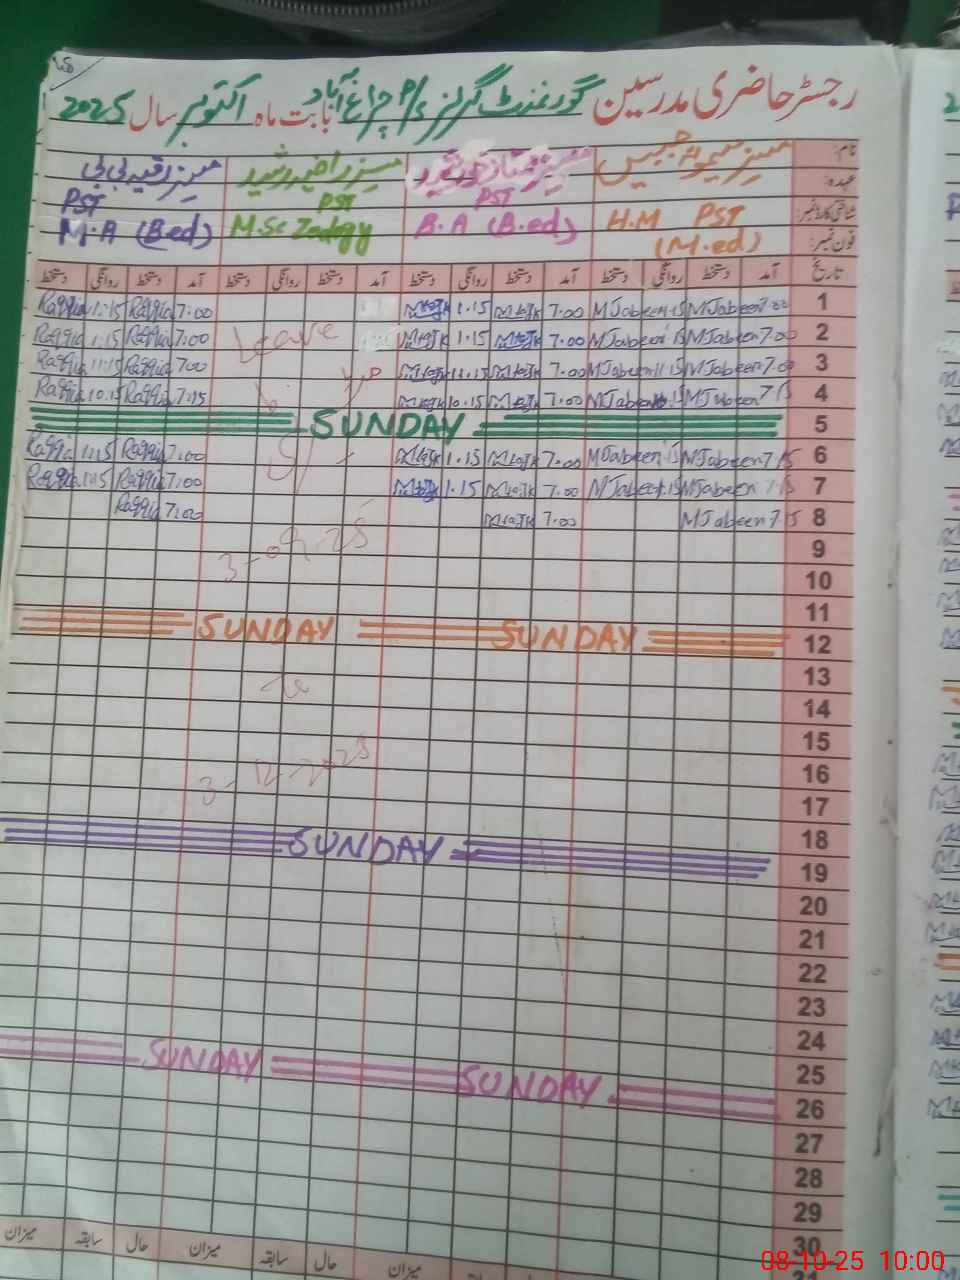 رجسٹر حاضری مدرسین گورنمنٹ گرلز P/S چراغ آباد بابت ماہ اکتوبر سال 2025
نام:
مسز راضیہ رشید مسز رقیہ بی بی
عہدہ: PST PST PST
شناختی کارڈ نمبر: H.M PST B.A (B.ed) M.Sc Zoology M.A (B.ed)
فون نمبر: (M.ed)
تاریخ آمد دستخط روانگی دستخط آمد دستخط روانگی دستخط آمد دستخط روانگی دستخط آمد دستخط روانگی دستخط
1 7.00 MJabeen MJabeen 7.00 1.15 7.00 Raqqia 1.15 Raqqia
2 7.00 MJabeen MJabeen 7.00 1.15 Leave 7.00 Raqqia 1.15 Raqqia
3 7.00 MJabeen MJabeen 7.00 11.15 7.00 Raqqia 11.15 Raqqia
4 7.15 MJabeen MJabeen 7.00 10.15 to 7.15 Raqqia 10.15 Raqqia
5 SUNDAY
6 7.15 MJabeen MJabeen 7.00 1.15 7.00 Raqqia 1.15 Raqqia
7 7.15 MJabeen MJabeen 7.00 1.15 7.00 Raqqia 1.15 Raqqia
8 7.15 MJabeen 7.00 7.00 Raqqia
9 3-09-25
10
11
12 SUNDAY SUNDAY
13
14 To
15
16
17 3-12-2025
18
19 SUNDAY
20
21
22
23
24
25
26 SUNDAY SUNDAY
27
28
29
30
حال سابقہ میزان حال سابقہ میزان
میزان
31
08-10-25 10:00